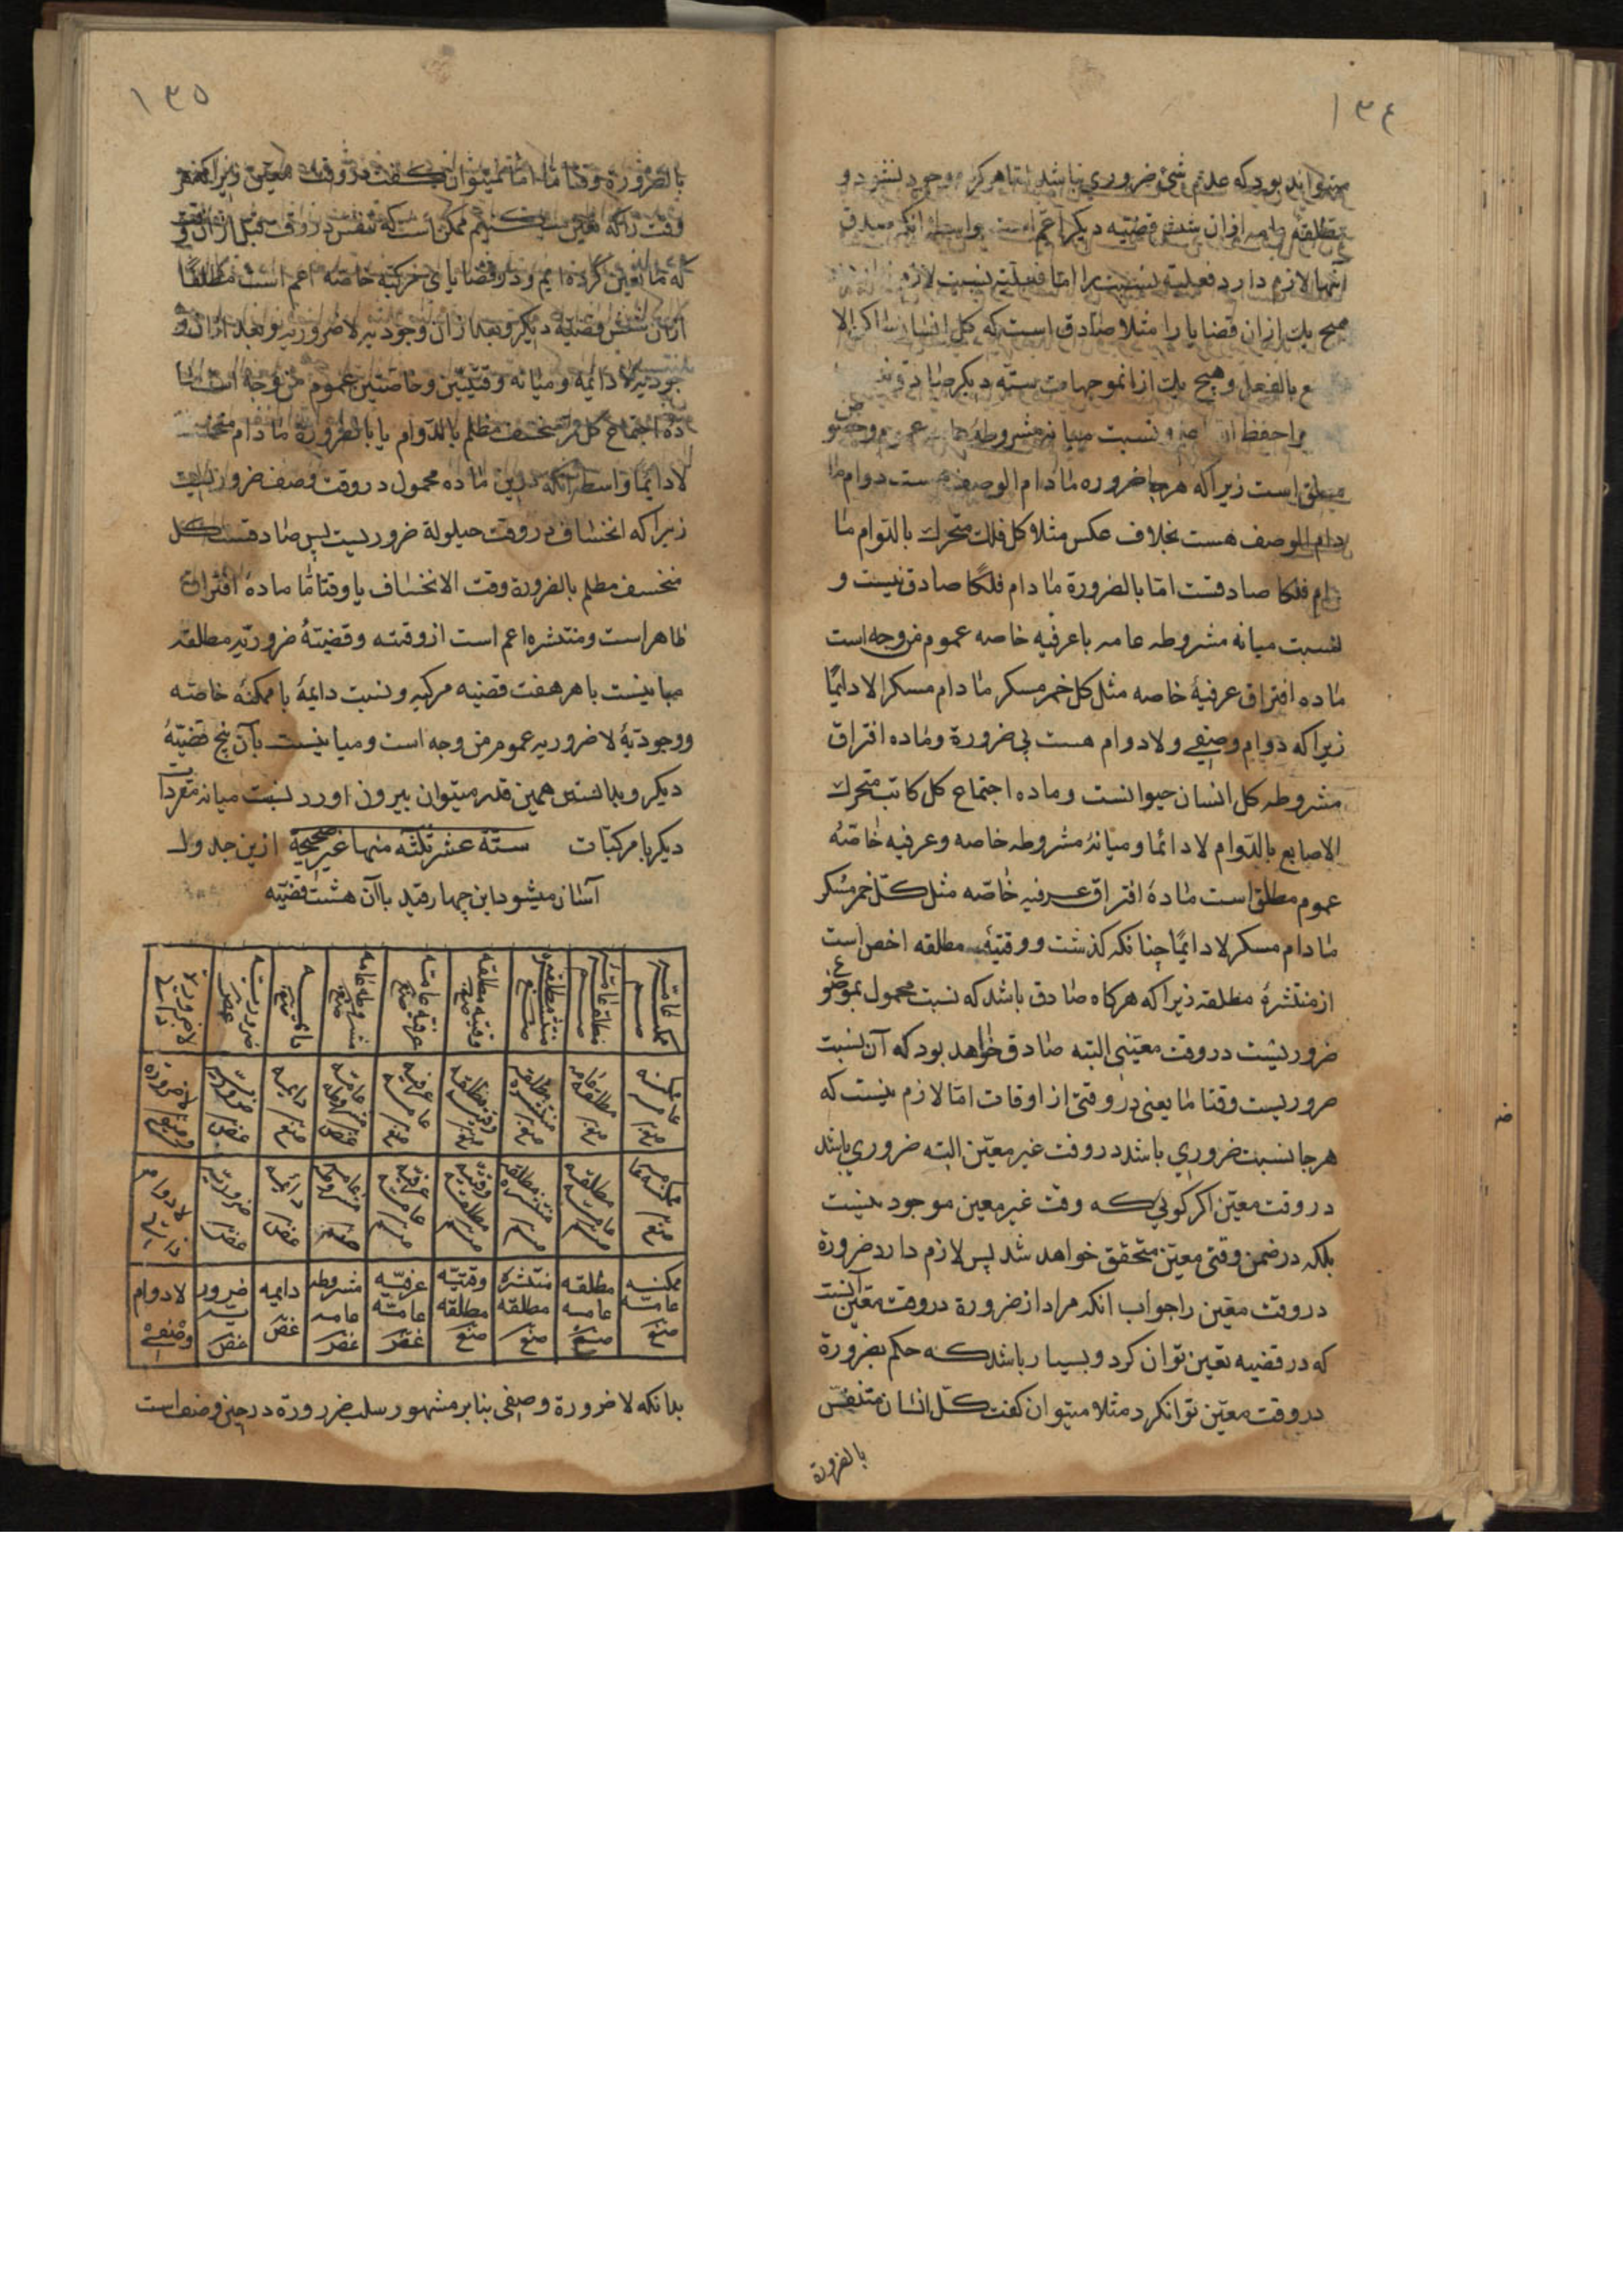 ١٣٤
میتواند بود که عدم شئ ضروری نباشد اما هرگز موجود نشود و
مطلقه عامه ازان شش قضیه دیگر اعم است واسطه انکه صدق
آنها لازم دارد فعلیة نسبت را اما فعلیة نسبت لازم
هیچ یك ازان قضایا را مثلا صادق است که کل انسان ضاحك الا
ع بالفعل وهیچ یك از انموجهات سته دیگر صادق
را حفظ نسبت میانه مشروطه عموم وخصو
ص
مطلق است زیرا که هرجا ضروره مادام الوصف هست دوام ما
دام الوصف هست بخلاف عکس مثلا کل فلك متحرك بالدوام ما
دام فلکا صادقست اما بالضرورة مادام فلکًا صادق نیست و
نسبت میانه مشروطه عامه با عرفیه خاصه عموم من وجه است
ماده افتراق عرفیهٔ خاصه مثل کل خمر مسکر مادام مسکرا لا دائمًا
زیرا که دوام وصفی ولا دوام هست بی ضرورة وماده افتراق
مشروطه کل انسان حیوانست وماده اجتماع کل کاتب متحرك
الاصابع بالدوام لا دائما ومیانهٔ مشروطه خاصه وعرفیه خاصهٔ
عموم مطلق است مادهٔ افتراق عرفیه خاصه مثل کل خمر مسکر
مادام مسکر لا دائمًا چنانکه کذشت ووقتیهٔ مطلقه اخص است
از منتشرهٔ مطلقه زیرا که هرکاه صادق باشد که نسبت محمول بموضو
ع
ضروریست در وقت معینی البته صادق خواهد بود که آن نسبت
ضروریست وقتا ما یعنی در وقتی از اوقات اما لازم نیست که
هرجا نسبت ضروری باشد در وقت غیر معین البته ضروری باشد
در وقت معین اکر کوئی که وقت غیر معین موجود نیست
بلکه در ضمن وقتی معین متحقق خواهد شد پس لازم دارد ضرورة
در وقت معین را جواب انکه مراد از ضرورة در وقت معین آنست
که در قضیه تعین توان کرد وبسیار باشد که حکم بضرورة
در وقت معین توانکرد مثلا میتوان کفت کل انسان متنفس
بالضرورة
١٣٥
بالضرورة وقتا ما اما نمیتوان کفت در وقت معین زیرا که هر
وقت را که تعین میکنیم ممکن است که تنفس در وقت قبل ازان وقت
که ما تعین کرده ایم ودر قضایای مرکبه خاصه اعم است مطلقًا
ازان شش قضیه دیکر وبعد ازان وجودیه لا ضروریه وبعد ازان و
جودیه لا دائمه ومیانه وقتیتین وخاصتین عموم من وجه است ما
ده اجتماع کل منخسف مظلم بالدوام یا بالضرورة مادام منخسفا
لا دائمًا واسطه آنکه درین ماده محمول در وقت وصف ضروریست
زیرا که انخساف در وقت حیلولة ضروریست پس صادقست کل
منخسف مظلم بالضرورة وقت الانخساف یا وقتا ما مادهٔ افتراق
ظاهر است ومنتشره اعم است از وقته وقضیهٔ ضروریه مطلقه
مباینست با هر هفت قضیه مرکبه ونسبت دائمهٔ با ممکنهٔ خاصه
ووجودیهٔ لا ضروریه عموم من وجه است ومباینست بآن پنج قضیهٔ
دیکر وبدانستن همین قدر میتوان بیرون اورد نسبت میانه مفردات
دیکر با مرکبات ستة عشر ثلثة منها غیر صحیحة ازین جدول
آسان میشود این چهار قید با آن هشت قضیه
ممکنه عامه صح | مطلقه عامه صح | منتشره مطلقه صح | وقتیه مطلقه صح | عرفیه عامه صح | مشروطه عامه صح | دائمیه صح | ضروریه غص | لا ضرورة ذاتیه
ممکنه عامه صغ | مطلقه عامه صغ | منتشره مطلقه صغ | وقتیه مطلقه صغ | عرفیه عامه صغ | مشروطه عامه غص | دایمیه صغ | ضروریه غص | لا ضرورة وصفیه
ممکنه عامه صغ | مطلقه عامه صغ | منتشره مطلقه صغ | وقتیه مطلقه صغ | عرفیه عامه صغ | مشروطه عامه صغ | دائمیه غص | ضروریه غص | لا دوام ذاتی
ممکنه عامة صغ | مطلقه عامه صغ | منتشرهٔ مطلقه صغ | وقتیه مطلقه صغ | عرفیه عامه غص | مشروطه عامه غص | دایمیه غص | ضروریه غص | لا دوام وصفی
بدانکه لا ضرورة وصفی بنابر مشهور سلب ضرورة در حین وصف است